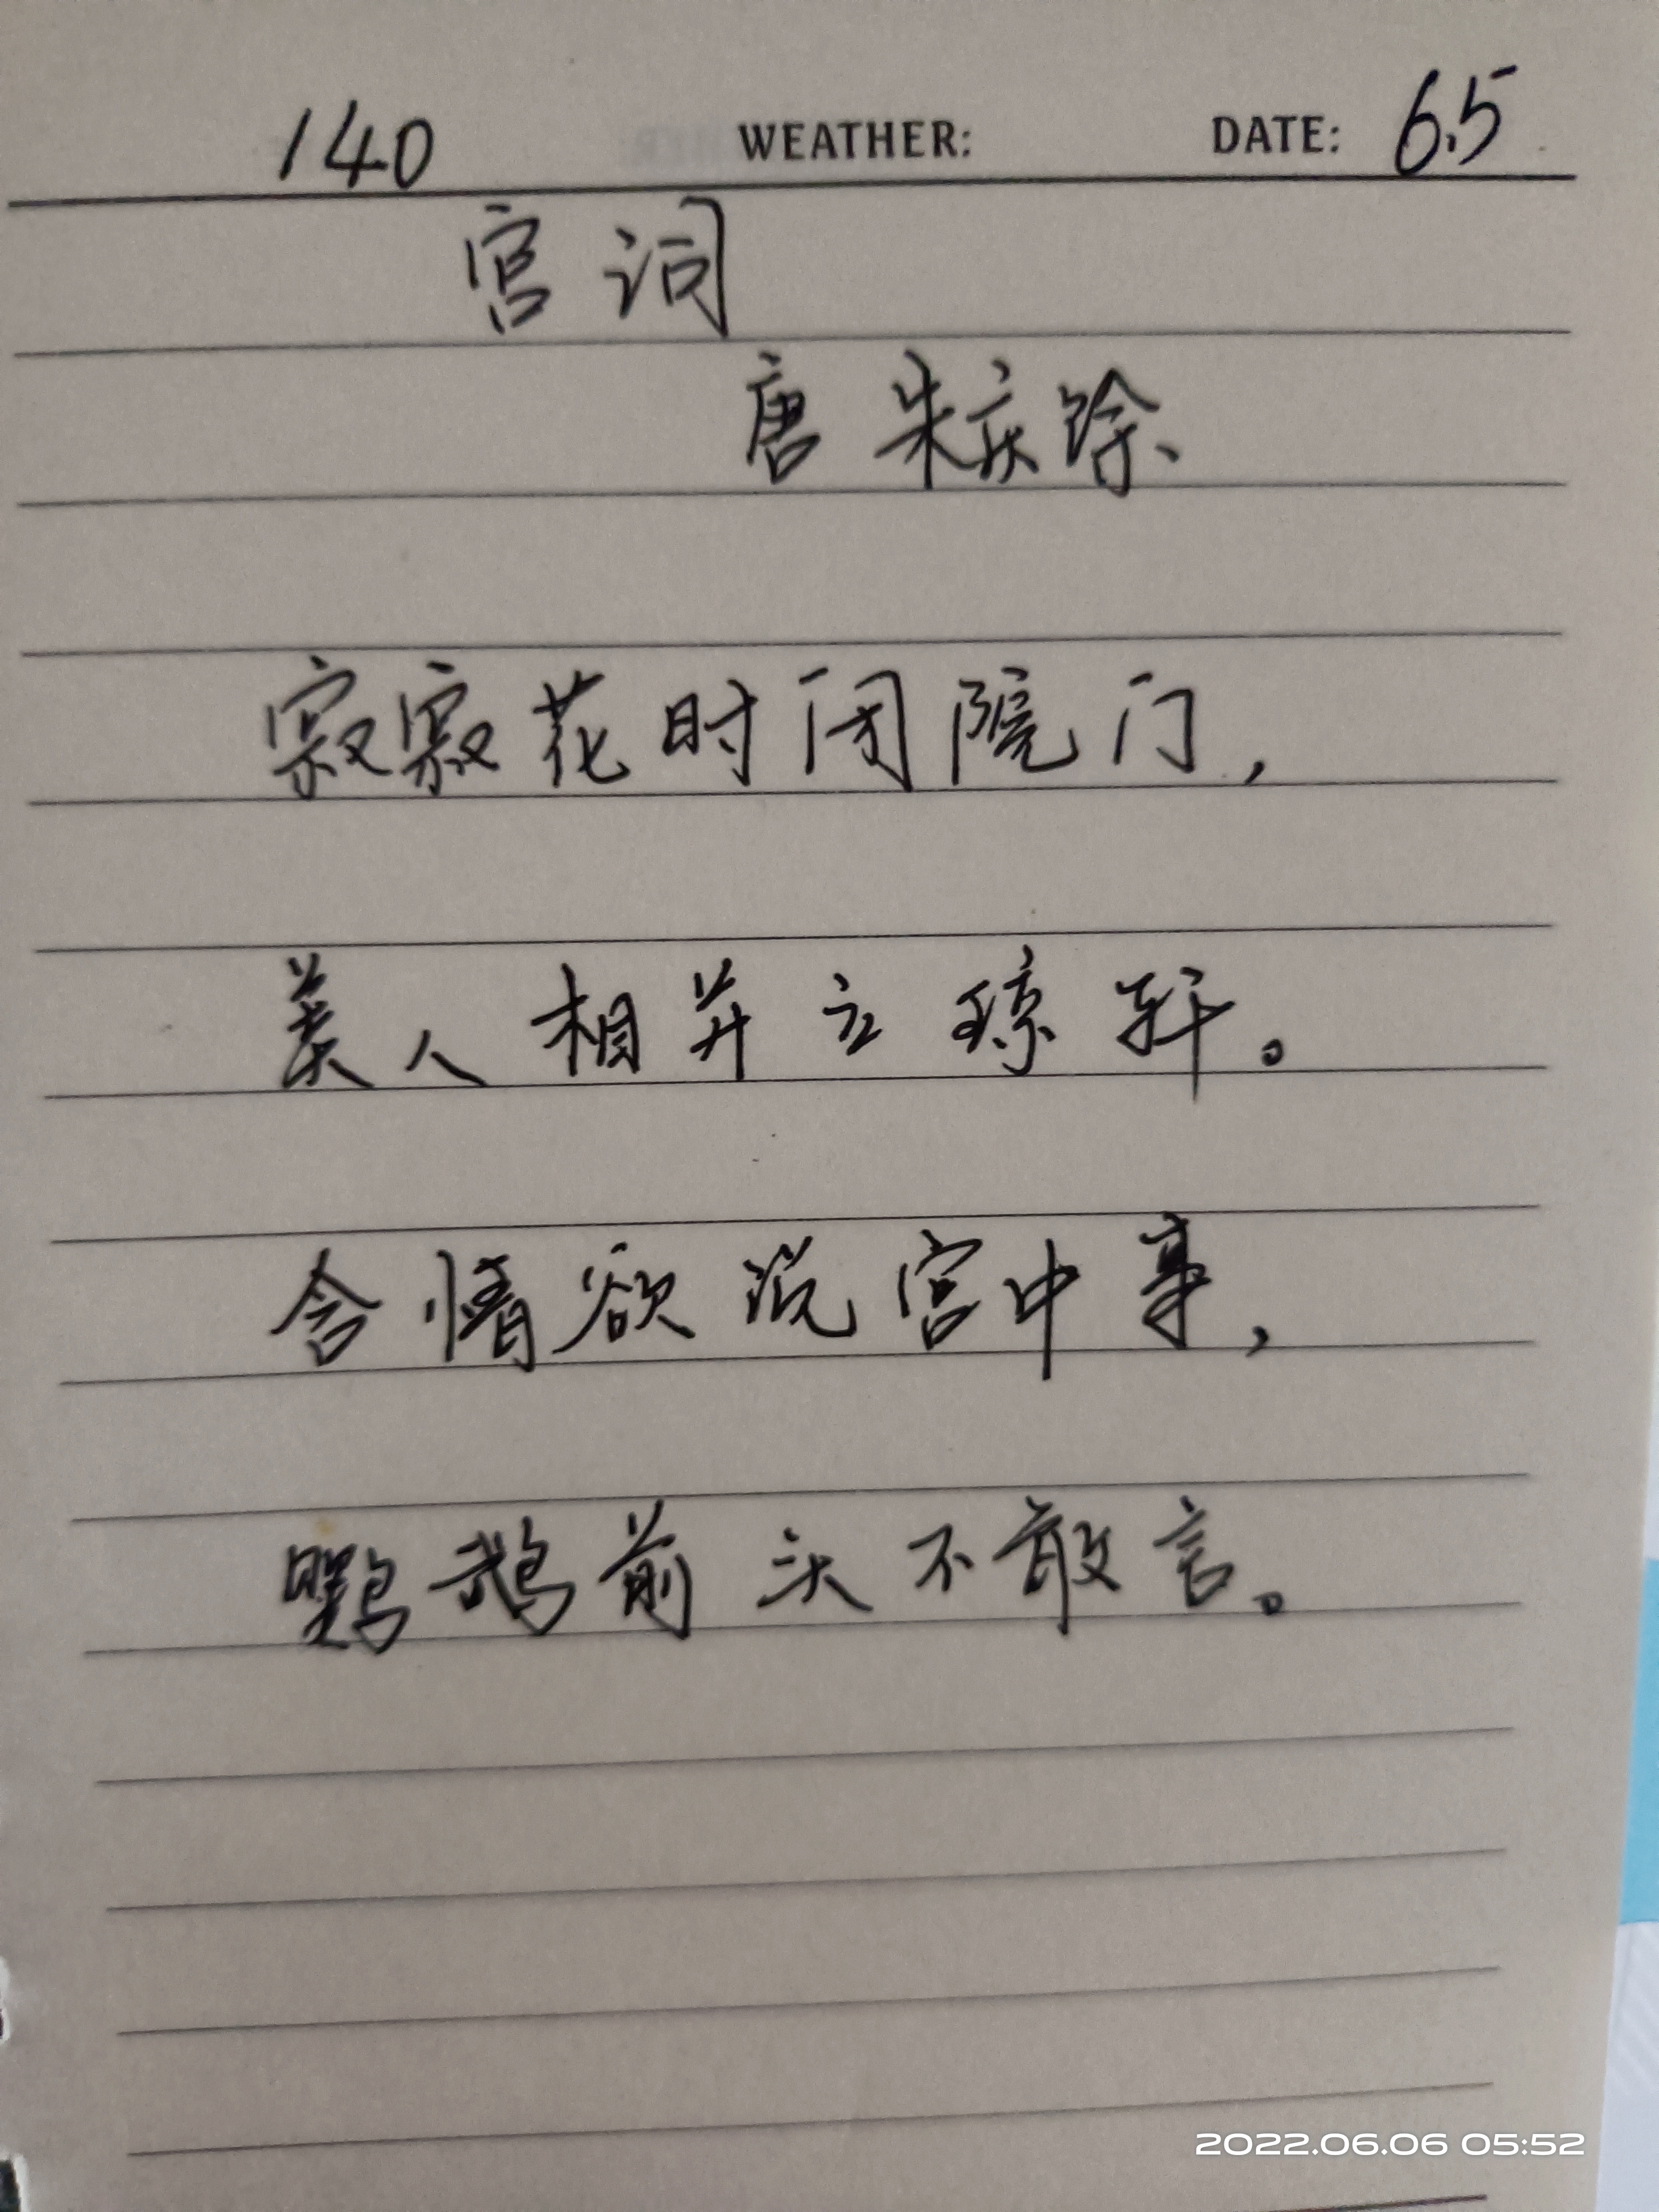 140 WEATHER: DATE: 6.5
宫词
唐 朱庆馀
寂寂花时闭院门，
美人相并立琼轩。
含情欲说宫中事，
鹦鹉前头不敢言。
2022.06.06 05:52